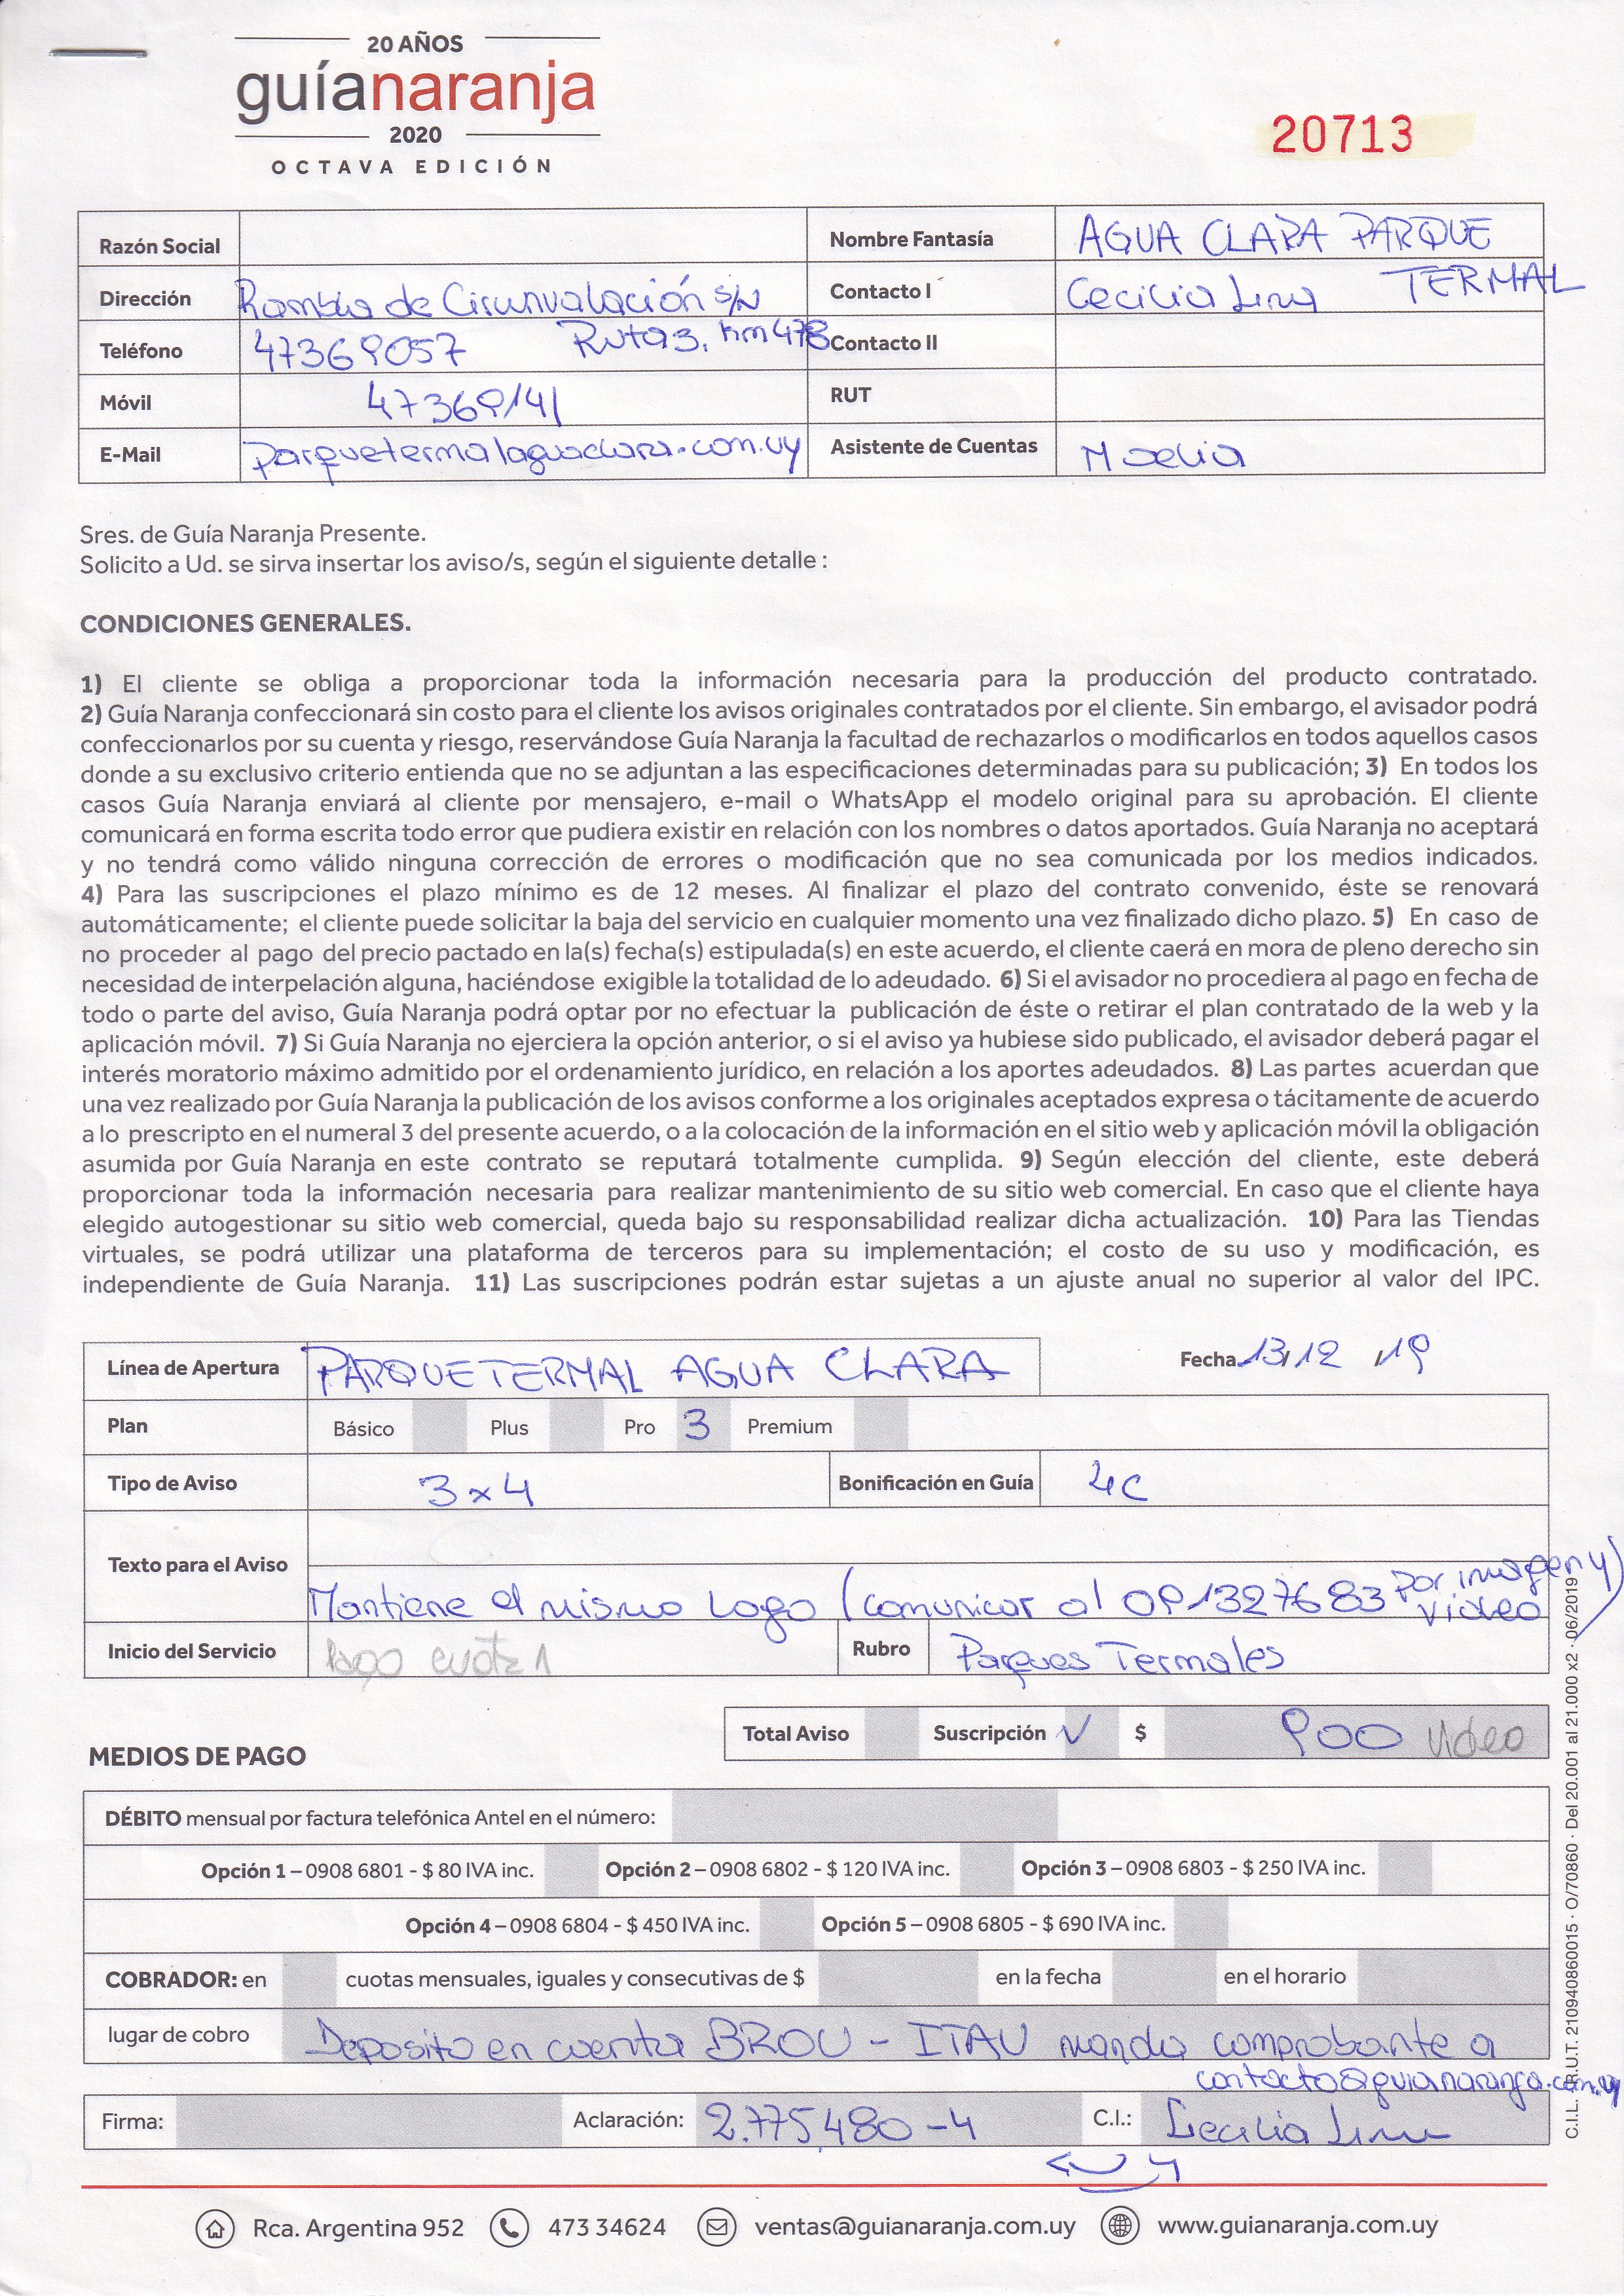 20 AÑOS
guíanaranja
2020
OCTAVA EDICIÓN
20713
Razón Social
Nombre Fantasía AGUA CLARA PARQUE
TERMAL
Dirección Rambla de Circunvalación s/N
Ruta 3, Km 478
Contacto I Cecilia
Teléfono 47369057
Contacto II
Móvil 47369141
RUT
E-Mail parquetermalaguaclara.com.uy
Asistente de Cuentas Noelia
Sres. de Guía Naranja Presente.
Solicito a Ud. se sirva insertar los aviso/s, según el siguiente detalle :
CONDICIONES GENERALES.
1) El cliente se obliga a proporcionar toda la información necesaria para la producción del producto contratado.
2) Guía Naranja confeccionará sin costo para el cliente los avisos originales contratados por el cliente. Sin embargo, el avisador podrá
confeccionarlos por su cuenta y riesgo, reservándose Guía Naranja la facultad de rechazarlos o modificarlos en todos aquellos casos
donde a su exclusivo criterio entienda que no se adjuntan a las especificaciones determinadas para su publicación; 3) En todos los
casos Guía Naranja enviará al cliente por mensajero, e-mail o WhatsApp el modelo original para su aprobación. El cliente
comunicará en forma escrita todo error que pudiera existir en relación con los nombres o datos aportados. Guía Naranja no aceptará
y no tendrá como válido ninguna corrección de errores o modificación que no sea comunicada por los medios indicados.
4) Para las suscripciones el plazo mínimo es de 12 meses. Al finalizar el plazo del contrato convenido, éste se renovará
automáticamente; el cliente puede solicitar la baja del servicio en cualquier momento una vez finalizado dicho plazo. 5) En caso de
no proceder al pago del precio pactado en la(s) fecha(s) estipulada(s) en este acuerdo, el cliente caerá en mora de pleno derecho sin
necesidad de interpelación alguna, haciéndose exigible la totalidad de lo adeudado. 6) Si el avisador no procediera al pago en fecha de
todo o parte del aviso, Guía Naranja podrá optar por no efectuar la publicación de éste o retirar el plan contratado de la web y la
aplicación móvil. 7) Si Guía Naranja no ejerciera la opción anterior, o si el aviso ya hubiese sido publicado, el avisador deberá pagar el
interés moratorio máximo admitido por el ordenamiento jurídico, en relación a los aportes adeudados. 8) Las partes acuerdan que
una vez realizado por Guía Naranja la publicación de los avisos conforme a los originales aceptados expresa o tácitamente de acuerdo
a lo prescripto en el numeral 3 del presente acuerdo, o a la colocación de la información en el sitio web y aplicación móvil la obligación
asumida por Guía Naranja en este contrato se reputará totalmente cumplida. 9) Según elección del cliente, este deberá
proporcionar toda la información necesaria para realizar mantenimiento de su sitio web comercial. En caso que el cliente haya
elegido autogestionar su sitio web comercial, queda bajo su responsabilidad realizar dicha actualización. 10) Para las Tiendas
virtuales, se podrá utilizar una plataforma de terceros para su implementación; el costo de su uso y modificación, es
independiente de Guía Naranja. 11) Las suscripciones podrán estar sujetas a un ajuste anual no superior al valor del IPC.
Línea de Apertura PARQUE TERMAL AGUA CLARA
Fecha 13/12/19
Plan Básico Plus Pro 3 Premium
Tipo de Aviso 3x4 Bonificación en Guía 4C
Texto para el Aviso
Mantiene el mismo Logo (comunicar al 091327683 por imagen y
video)
Inicio del Servicio pago cuota 1 Rubro Parques Termales
Total Aviso Suscripción ✓ $ 900 video
MEDIOS DE PAGO
DÉBITO mensual por factura telefónica Antel en el número:
Opción 1 – 0908 6801 - $ 80 IVA inc. Opción 2 – 0908 6802 - $ 120 IVA inc. Opción 3 – 0908 6803 - $ 250 IVA inc.
Opción 4 – 0908 6804 - $ 450 IVA inc. Opción 5 – 0908 6805 - $ 690 IVA inc.
COBRADOR: en cuotas mensuales, iguales y consecutivas de $ en la fecha en el horario
lugar de cobro Deposito en cuenta BROU - ITAU manda comprobante a
contacto@guianaranja.com.uy
Firma: Aclaración: 2.775.480-4 C.I.: Cecilia
Rca. Argentina 952 473 34624 ventas@guianaranja.com.uy www.guianaranja.com.uy
C.I.L. · R.U.T. 210940860015 · O/70860 · Del 20.001 al 21.000 x2 · 06/2019